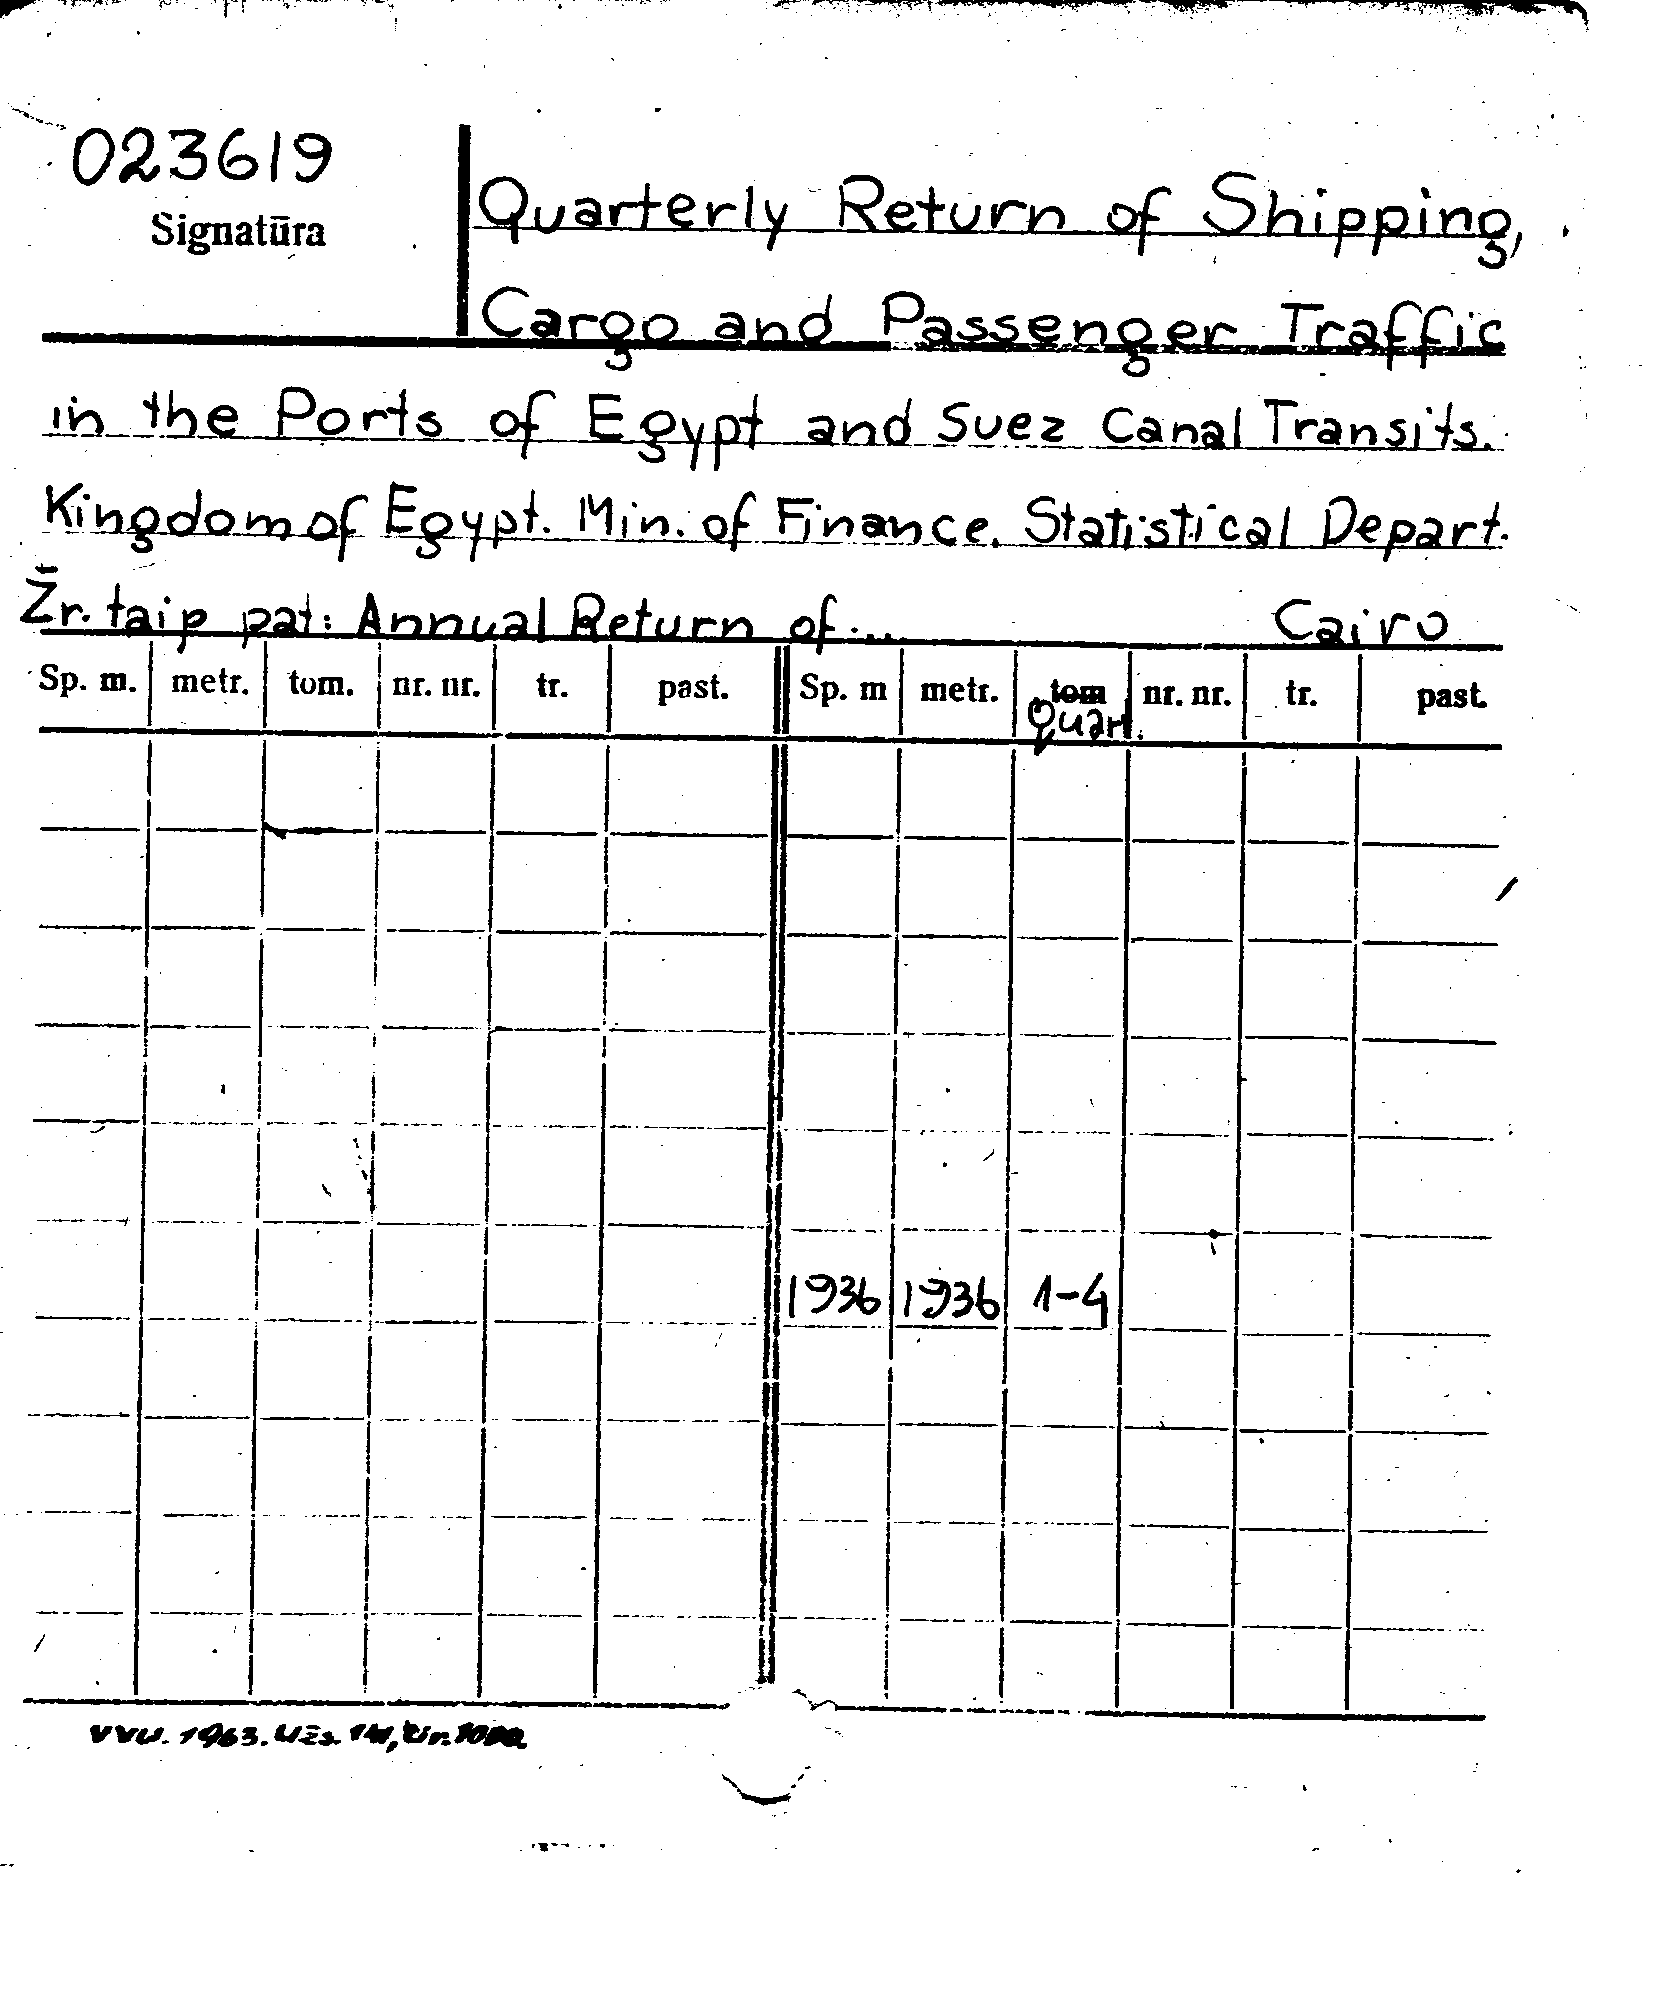 023619
Signatūra
Quarterly Return of Shipping,
Cargo and Passenger Traffic
in the Ports of Egypt and Suez Canal Transits.
Kingdom of Egypt. Min. of Finance. Statistical Depart.
Žr. taip pat: Annual Return of... Cairo
Sp. m. metr. tom. nr. nr. tr. past. Sp. m metr. tom nr. nr. tr. past.
Quart.
1936 1936 1-4
VVU. 1963. Užs.